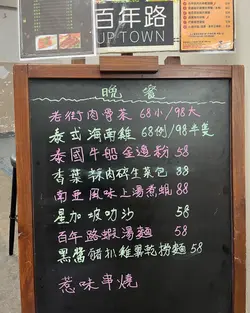 百年路
UPTOWN
晚餐
老街肉骨茶 68小/98大
泰式海南雞 68例/98半隻
泰國牛船金边粉 58
香葉辣肉碎生菜包 88
南亞風味上湯煮蜆 88
星加坡叻沙 58
百年路蝦湯麵 58
黑醬豬扒雞蛋乾撈麵 58
惹味串燒